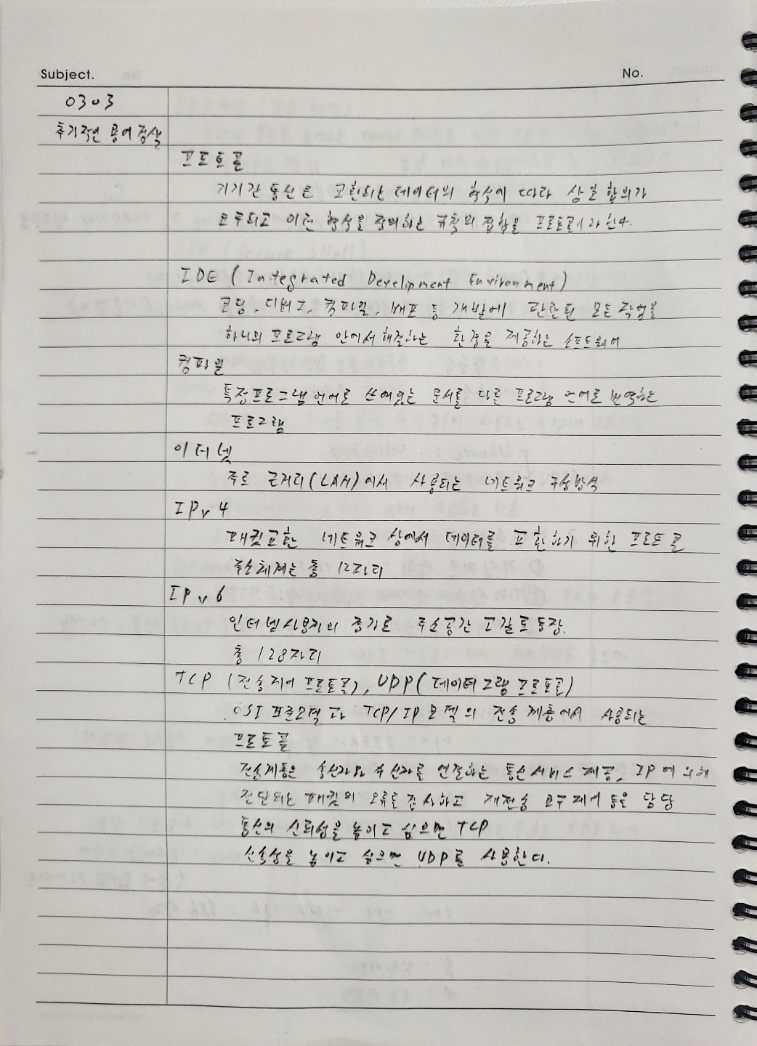 Subject.
No.
0303
추가적인 용어 검색
프로토콜
기기간 통신은 교환되는 데이터의 형식에 따라 상호 합의가
요구되고 이런 형식을 정의하는 규칙의 집합을 프로토콜이라 한다.
IDE (Integrated Development Environment)
코딩, 디버그, 컴파일, 배포 등 개발에 관련된 모든 작업을
하나의 프로그램 안에서 해결하는 환경을 제공하는 소프트웨어
컴파일
특정프로그램 언어로 쓰여있는 문서를 다른 프로그램 언어로 번역하는
프로그램
이더넷
주로 근거리(LAN)에서 사용되는 네트워크 구성방식
IPv4
패킷교환 네트워크 상에서 데이터를 교환하기 위한 프로토콜
주소체계는 총 12자리
IPv6
인터넷사용자의 증가로 주소공간 고갈로 등장.
총 128자리
TCP (전송제어 프로토콜), UDP(데이터그램 프로토콜)
OSI 표준모델과 TCP/IP 모델의 전송 계층에서 사용되는
프로토콜
전송계층은 송신자와 수신자를 연결하는 통신서비스 제공, IP에 의해
전달되는 패킷의 오류를 검사하고 재전송 요구 제어 등을 담당
통신의 신뢰성을 높이고 싶으면 TCP
신속성을 높이고 싶으면 UDP를 사용한다.